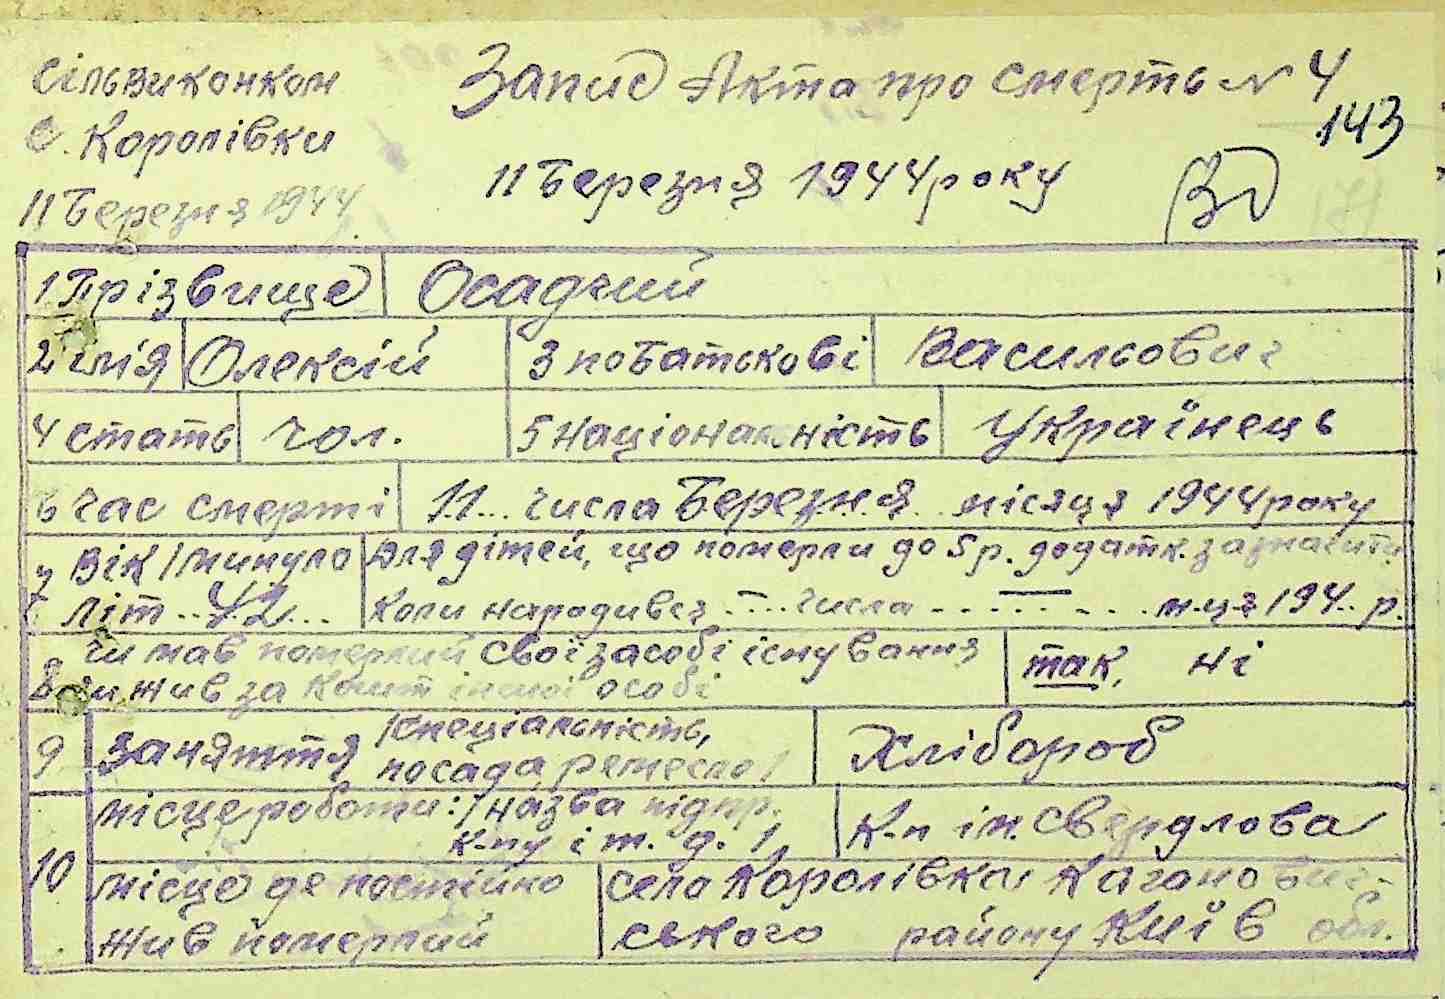 Сільвиконком
с. Королівки
11 Березня 1944
Запис Акта про смерть N 4
143
11 Березня 1944 року
1 Прізвище Осадчий
2 імія Олексій 3 по Батькові Васильович
4 стать чол. 5 національність Українець
6 час смерті 11... числа Березня.. місяця 1944 року
7 Вік /минуло Для дітей, що померли до 5 р. додатк. зазначити
літ .. 42... Коли народивсь ..—.. числа .....—..... м-ця 194.. р.
8 чи мав померлий свої засобі існування так, ні
чи жив за кошт іншої особі
9 Заняття /спеціальність, Хлібороб
посада ремесло/
10 місце роботи: /назва підпр. К-п ім. Свердлова
к-пу і т. д. /
місце де постійно село Королівка Каганович-
жив померлий ського району Київ обл.